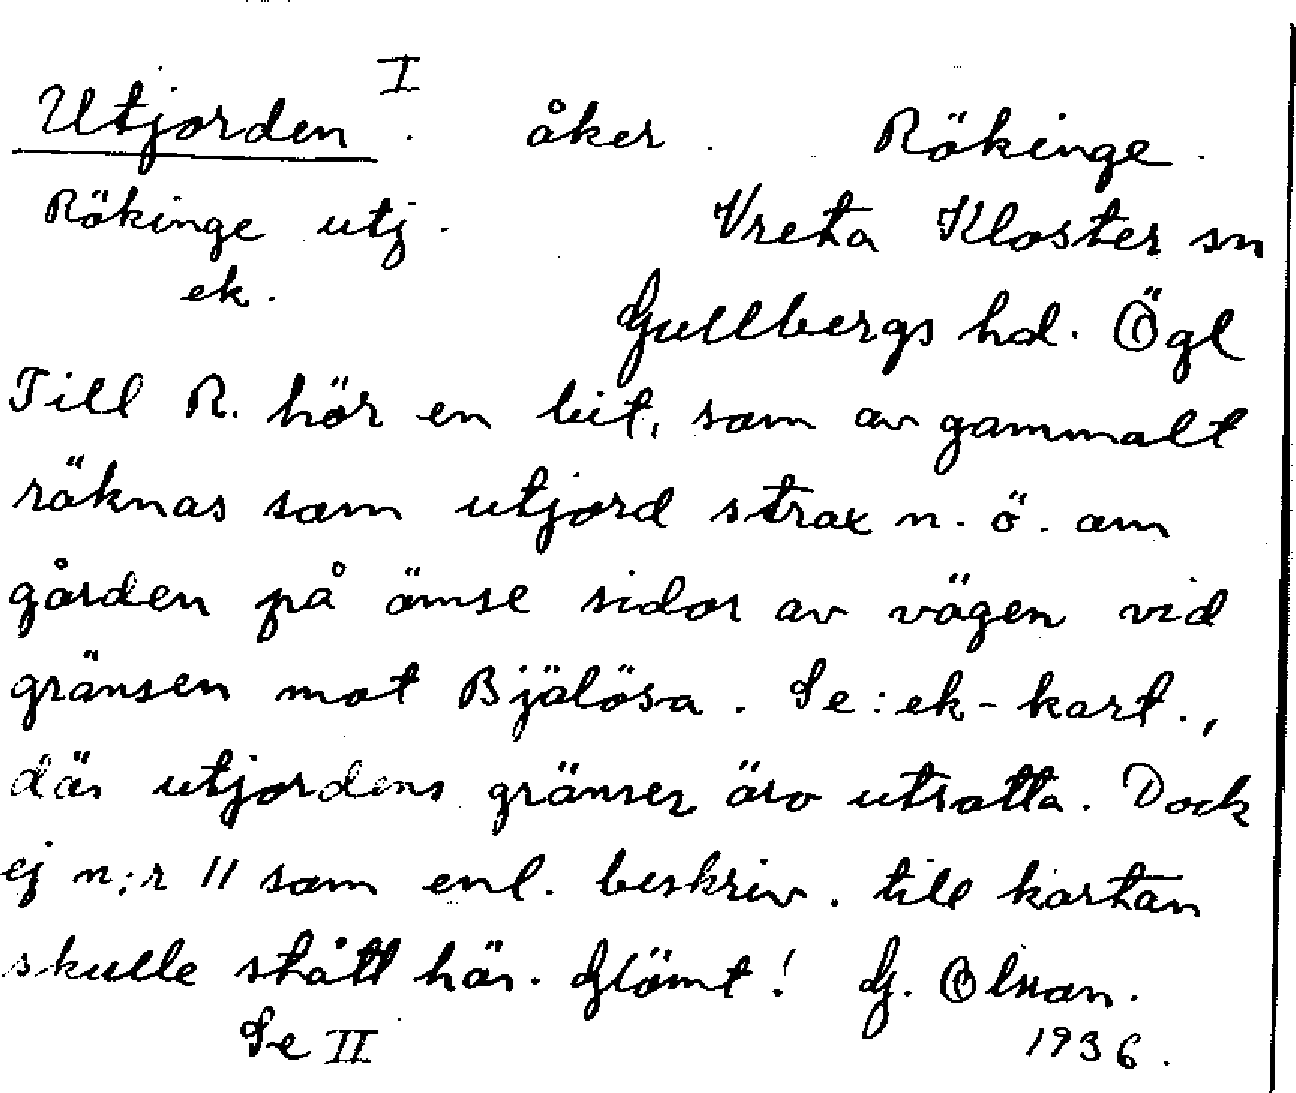 Utjorden I. åker. Rökinge.
Rökinge utj. Vreta Kloster sn
ek. Gullbergs hd. Ögl
Till R. hör en bit, som av gammalt
räknas som utjord strax n. ö. om
gården på ömse sidor av vägen vid
gränsen mot Bjälösa. Se: ek-kart.,
där utjordens gränser äro utsatta. Dock
ej n:r 11 som enl. beskriv. till kartan
skulle stått här. Glömt! G. Olson.
Se II 1936.